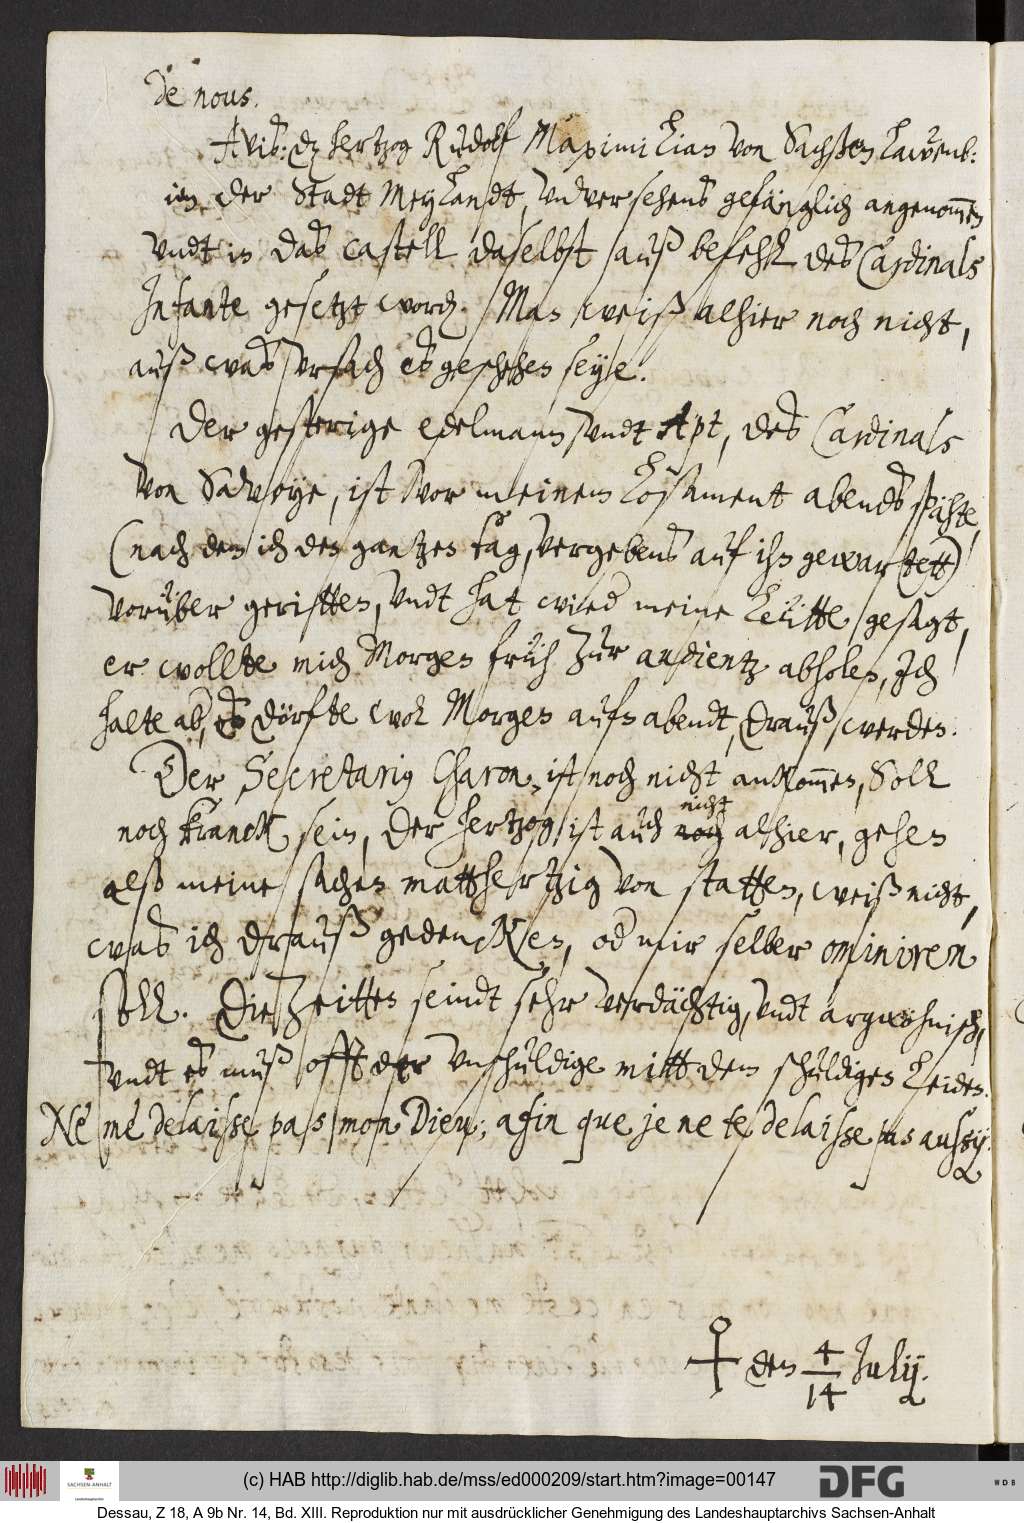 de nous.
Avis: dz hertzog Rudolf Maximilian von Sachßen Lawenb:
in der Stadt Meylandt, vnversehens gefänglich angenom̅en
vndt in das castell daselbst auß befehl des Cardinals
Infante gesetzt word. Man weiß alhier noch nicht,
auß was vrsach es geschehen seye.
Der gesterige edelmann vndt Apt, des Cardinals
von Savoye, ist vor meinem losament abends spähte,
(nach dem ich den gantzen tag, vergebens auf ihn gewartett)
vorüber geritten, vndt hat wied meine leütte gesagt,
er wollte mich Morgen früh zur audientz abholen, Ich
halte ab, es dörfte wol Morgen aufn abendt, drauß werden.
Der Secretarig Charon, ist noch nicht ankom̅en, Soll
noch kranck sein, der hertzog ist auch nicht alhier, gehen
also meine sachen matthertzig von statten, weiß nicht,
was ich drauß gedencken, od mir selber ominiren
soll. Die Zeitten seindt sehr verdächtig, vndt argwöhnisch,
vndt es muß offt der vnschuldige mitt dem schuldigen leiden.
Ne me delaisse pas mon Dieu, afin que je ne te delaisse pas aussy.
♁ den 4/14 Julij.
(c) HAB http://diglib.hab.de/mss/ed000209/start.htm?image=00147
SACHSEN-ANHALT
Landeshauptarchiv
DFG
WDB
Dessau, Z 18, A 9b Nr. 14, Bd. XIII. Reproduktion nur mit ausdrücklicher Genehmigung des Landeshauptarchivs Sachsen-Anhalt